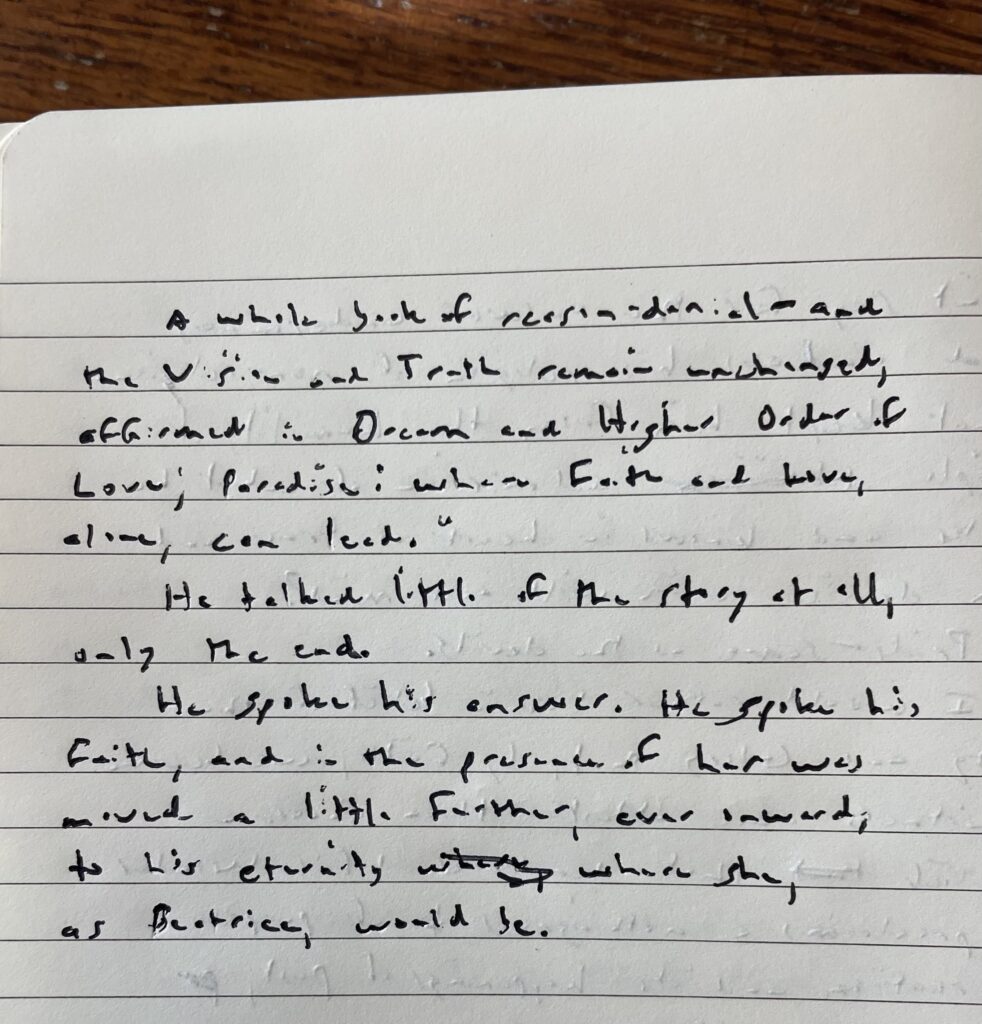 A whole book of reason-denial – and
the Vision and Truth remain unchanged,
affirmed in Dream and Higher Order of
Love; Paradise: where Faith and Love,
alone, can lead."
He talked little of the story at all,
only the end.
He spoke his answer. He spoke his
Faith, and in the presence of her was
moved a little further, ever inward,
to his eternity where she,
as Beatrice, would be.